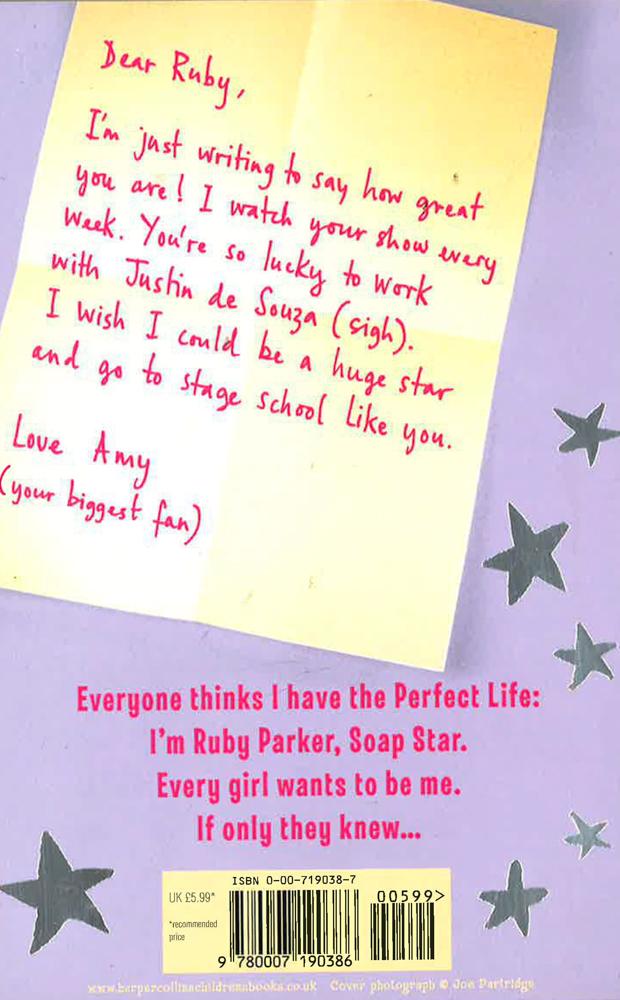 Dear Ruby,
I'm just writing to say how great
you are! I watch your show every
week. You're so lucky to work
with Justin de Souza (sigh).
I wish I could be a huge star
and go to stage school like you.
Love Amy
(your biggest fan)
Everyone thinks I have the Perfect Life:
I'm Ruby Parker, Soap Star.
Every girl wants to be me.
If only they knew...
ISBN 0-00-719038-7
UK £5.99*
*recommended
price
00599>
9 780007 190386
www.harpercollinschildrensbooks.co.uk Cover photograph © Joe Partridge